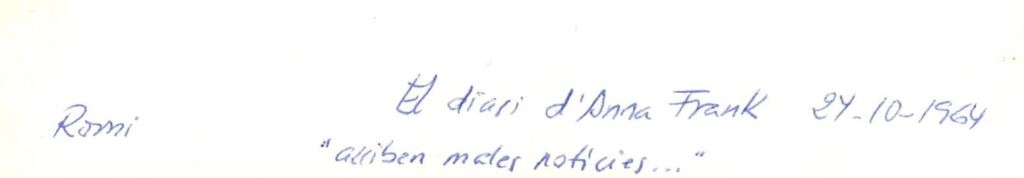 Romi
El diari d'Anna Frank 24-10-1964
"arriben males notícies..."